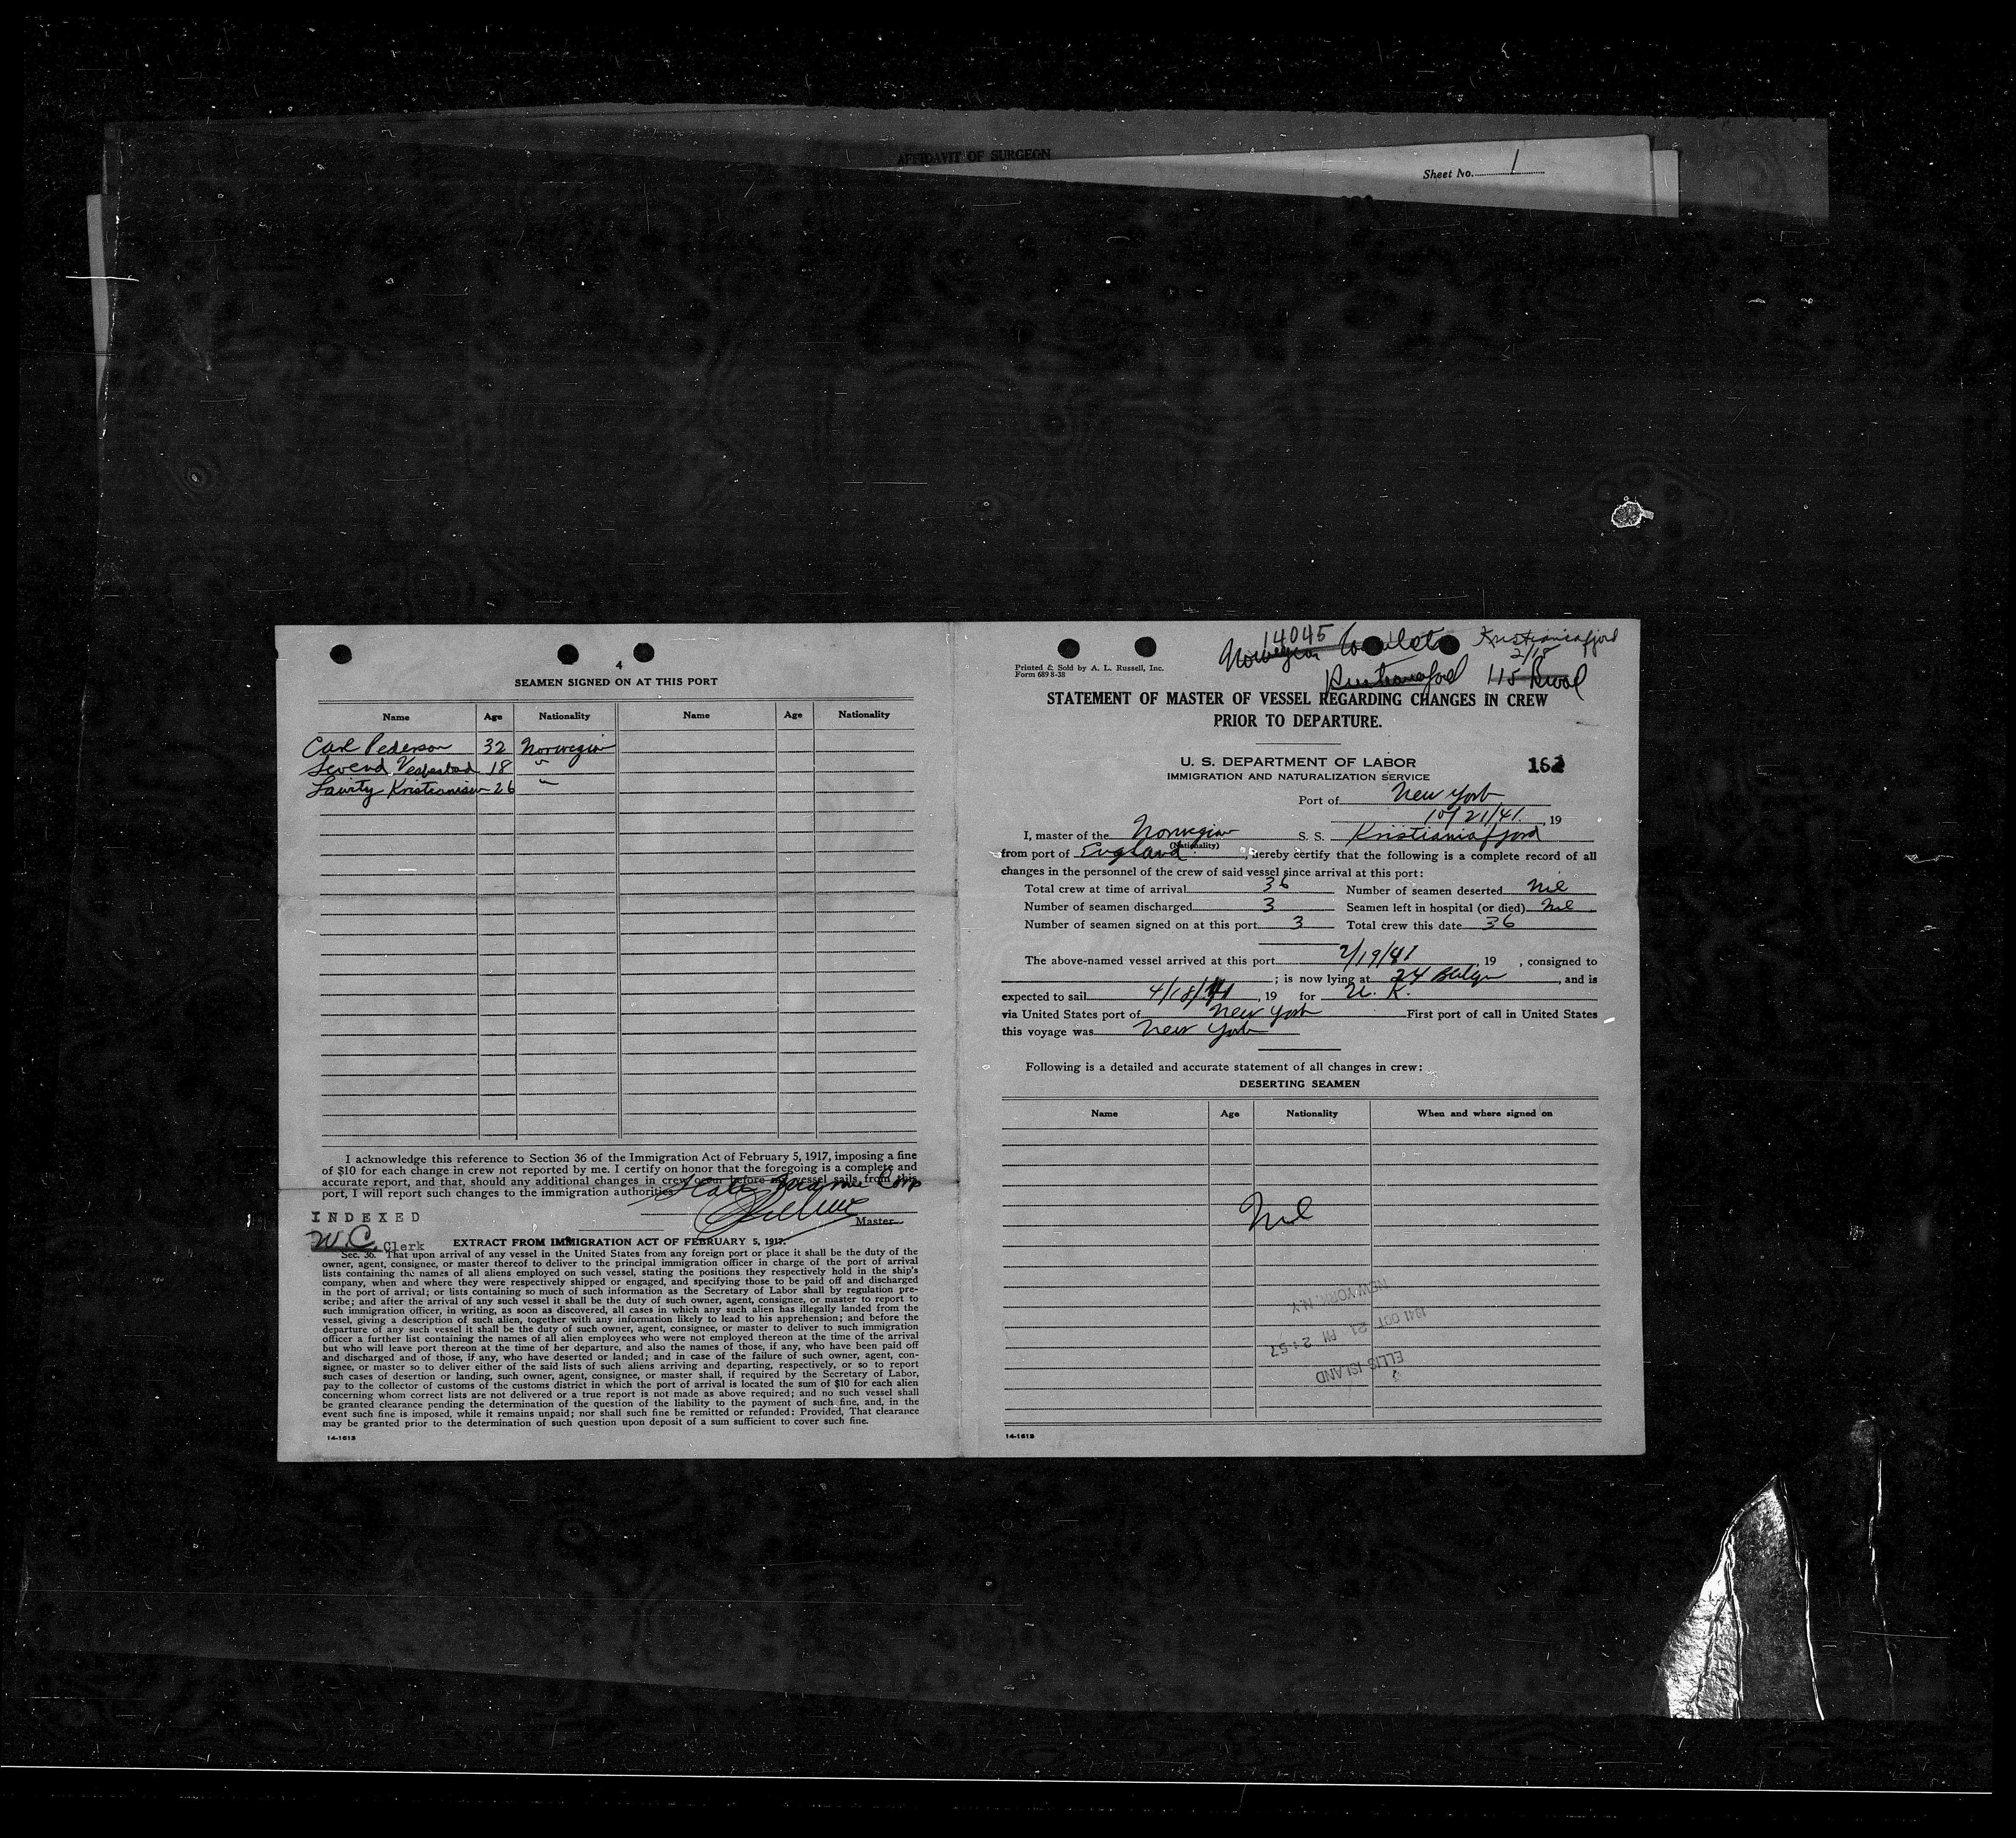 AFFIDAVIT OF SURGEON
Sheet No. 1
4
SEAMEN SIGNED ON AT THIS PORT
Name Age Nationality Name Age Nationality
Carl Pederson 32 Norwegian
18 "
Kristiansen 26 "
I acknowledge this reference to Section 36 of the Immigration Act of February 5, 1917, imposing a fine
of $10 for each change in crew not reported by me. I certify on honor that the foregoing is a complete and
accurate report, and that, should any additional changes in crew occur before my vessel sails from this
port, I will report such changes to the immigration authorities
Corp
Master
INDEXED
W.C. Clerk
EXTRACT FROM IMMIGRATION ACT OF FEBRUARY 5, 1917.
Sec. 36. That upon arrival of any vessel in the United States from any foreign port or place it shall be the duty of the
owner, agent, consignee, or master thereof to deliver to the principal immigration officer in charge of the port of arrival
lists containing the names of all aliens employed on such vessel, stating the positions they respectively hold in the ship's
company, when and where they were respectively shipped or engaged, and specifying those to be paid off and discharged
in the port of arrival; or lists containing so much of such information as the Secretary of Labor shall by regulation pre-
scribe; and after the arrival of any such vessel it shall be the duty of such owner, agent, consignee, or master to report to
such immigration officer, in writing, as soon as discovered, all cases in which any such alien has illegally landed from the
vessel, giving a description of such alien, together with any information likely to lead to his apprehension; and before the
departure of any such vessel it shall be the duty of such owner, agent, consignee, or master to deliver to such immigration
officer a further list containing the names of all alien employees who were not employed thereon at the time of the arrival
but who will leave port thereon at the time of her departure, and also the names of those, if any, who have been paid off
and discharged and of those, if any, who have deserted or landed; and in case of the failure of such owner, agent, con-
signee, or master so to deliver either of the said lists of such aliens arriving and departing, respectively, or so to report
such cases of desertion or landing, such owner, agent, consignee, or master shall, if required by the Secretary of Labor,
pay to the collector of customs of the customs district in which the port of arrival is located the sum of $10 for each alien
concerning whom correct lists are not delivered or a true report is not made as above required; and no such vessel shall
be granted clearance pending the determination of the question of the liability to the payment of such fine, and, in the
event such fine is imposed, while it remains unpaid; nor shall such fine be remitted or refunded: Provided, That clearance
may be granted prior to the determination of such question upon deposit of a sum sufficient to cover such fine.
14-1613
14045 Kristianiafjord
Norwegian 2/18
Printed & Sold by A. L. Russell, Inc.
Form 689 8-38
Kristianiafjord 115 Broad
STATEMENT OF MASTER OF VESSEL REGARDING CHANGES IN CREW
PRIOR TO DEPARTURE.
U. S. DEPARTMENT OF LABOR
IMMIGRATION AND NATURALIZATION SERVICE
Port of New York
10/21/41, 19
I, master of the Norwegian S. S. Kristianiafjord
(Nationality)
from port of England, hereby certify that the following is a complete record of all
changes in the personnel of the crew of said vessel since arrival at this port:
Total crew at time of arrival 36 Number of seamen deserted Nil
Number of seamen discharged 3 Seamen left in hospital (or died) Nil
Number of seamen signed on at this port 3 Total crew this date 36
The above-named vessel arrived at this port 2/19/41, 19 , consigned to
; is now lying at 24 , and is
expected to sail 4/18/41, 19 for U. K.
via United States port of New York First port of call in United States
this voyage was New York
Following is a detailed and accurate statement of all changes in crew:
DESERTING SEAMEN
Name Age Nationality When and where signed on
Nil
ELLIS ISLAND
1941 OCT 21 PM 2:57
NEW YORK, N.Y.
14-1613